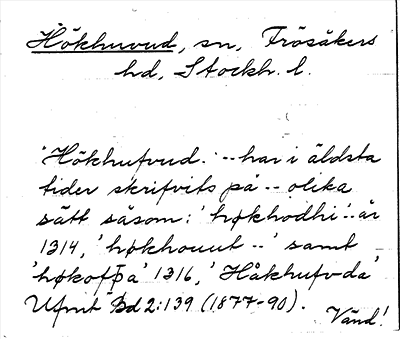 Hökhuvud, sn, Frösåkers
hd, Stockh. l.
'Hökhufvud. -- har i äldsta
tider skrifvits på -- olika
sätt såsom: 'høkhodhi -- år
1314, 'høkhouut --' samt
'høkofþa' 1316, 'Håkhufvda'
Ufmt Bd 2:139 (1877-90).
Vänd!